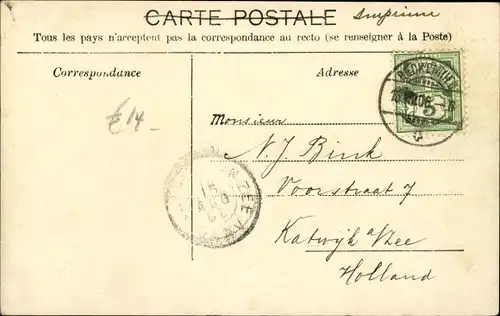 CARTE POSTALE
Imprimé
Tous les pays n'acceptent pas la correspondance au recto (se renseigner à la Poste)
Correspondance
Adresse
€14-
Monsieur
N J Bink
Voorstraat 7
Katwijk a/Zee
Holland
5
AN ZEE